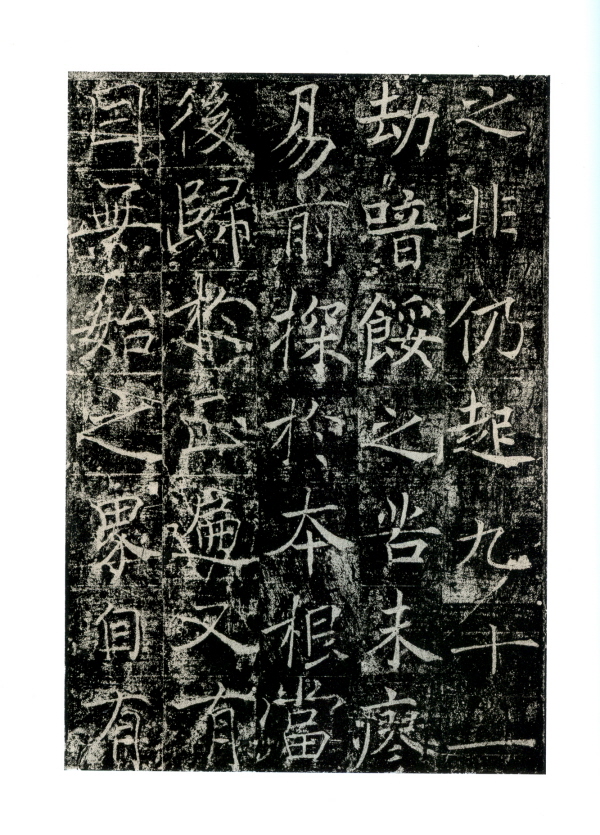 之非仍起九十一
劫暗餒之苦未瘳
易前探於本根當
後歸於正遍又有
無始之界自有